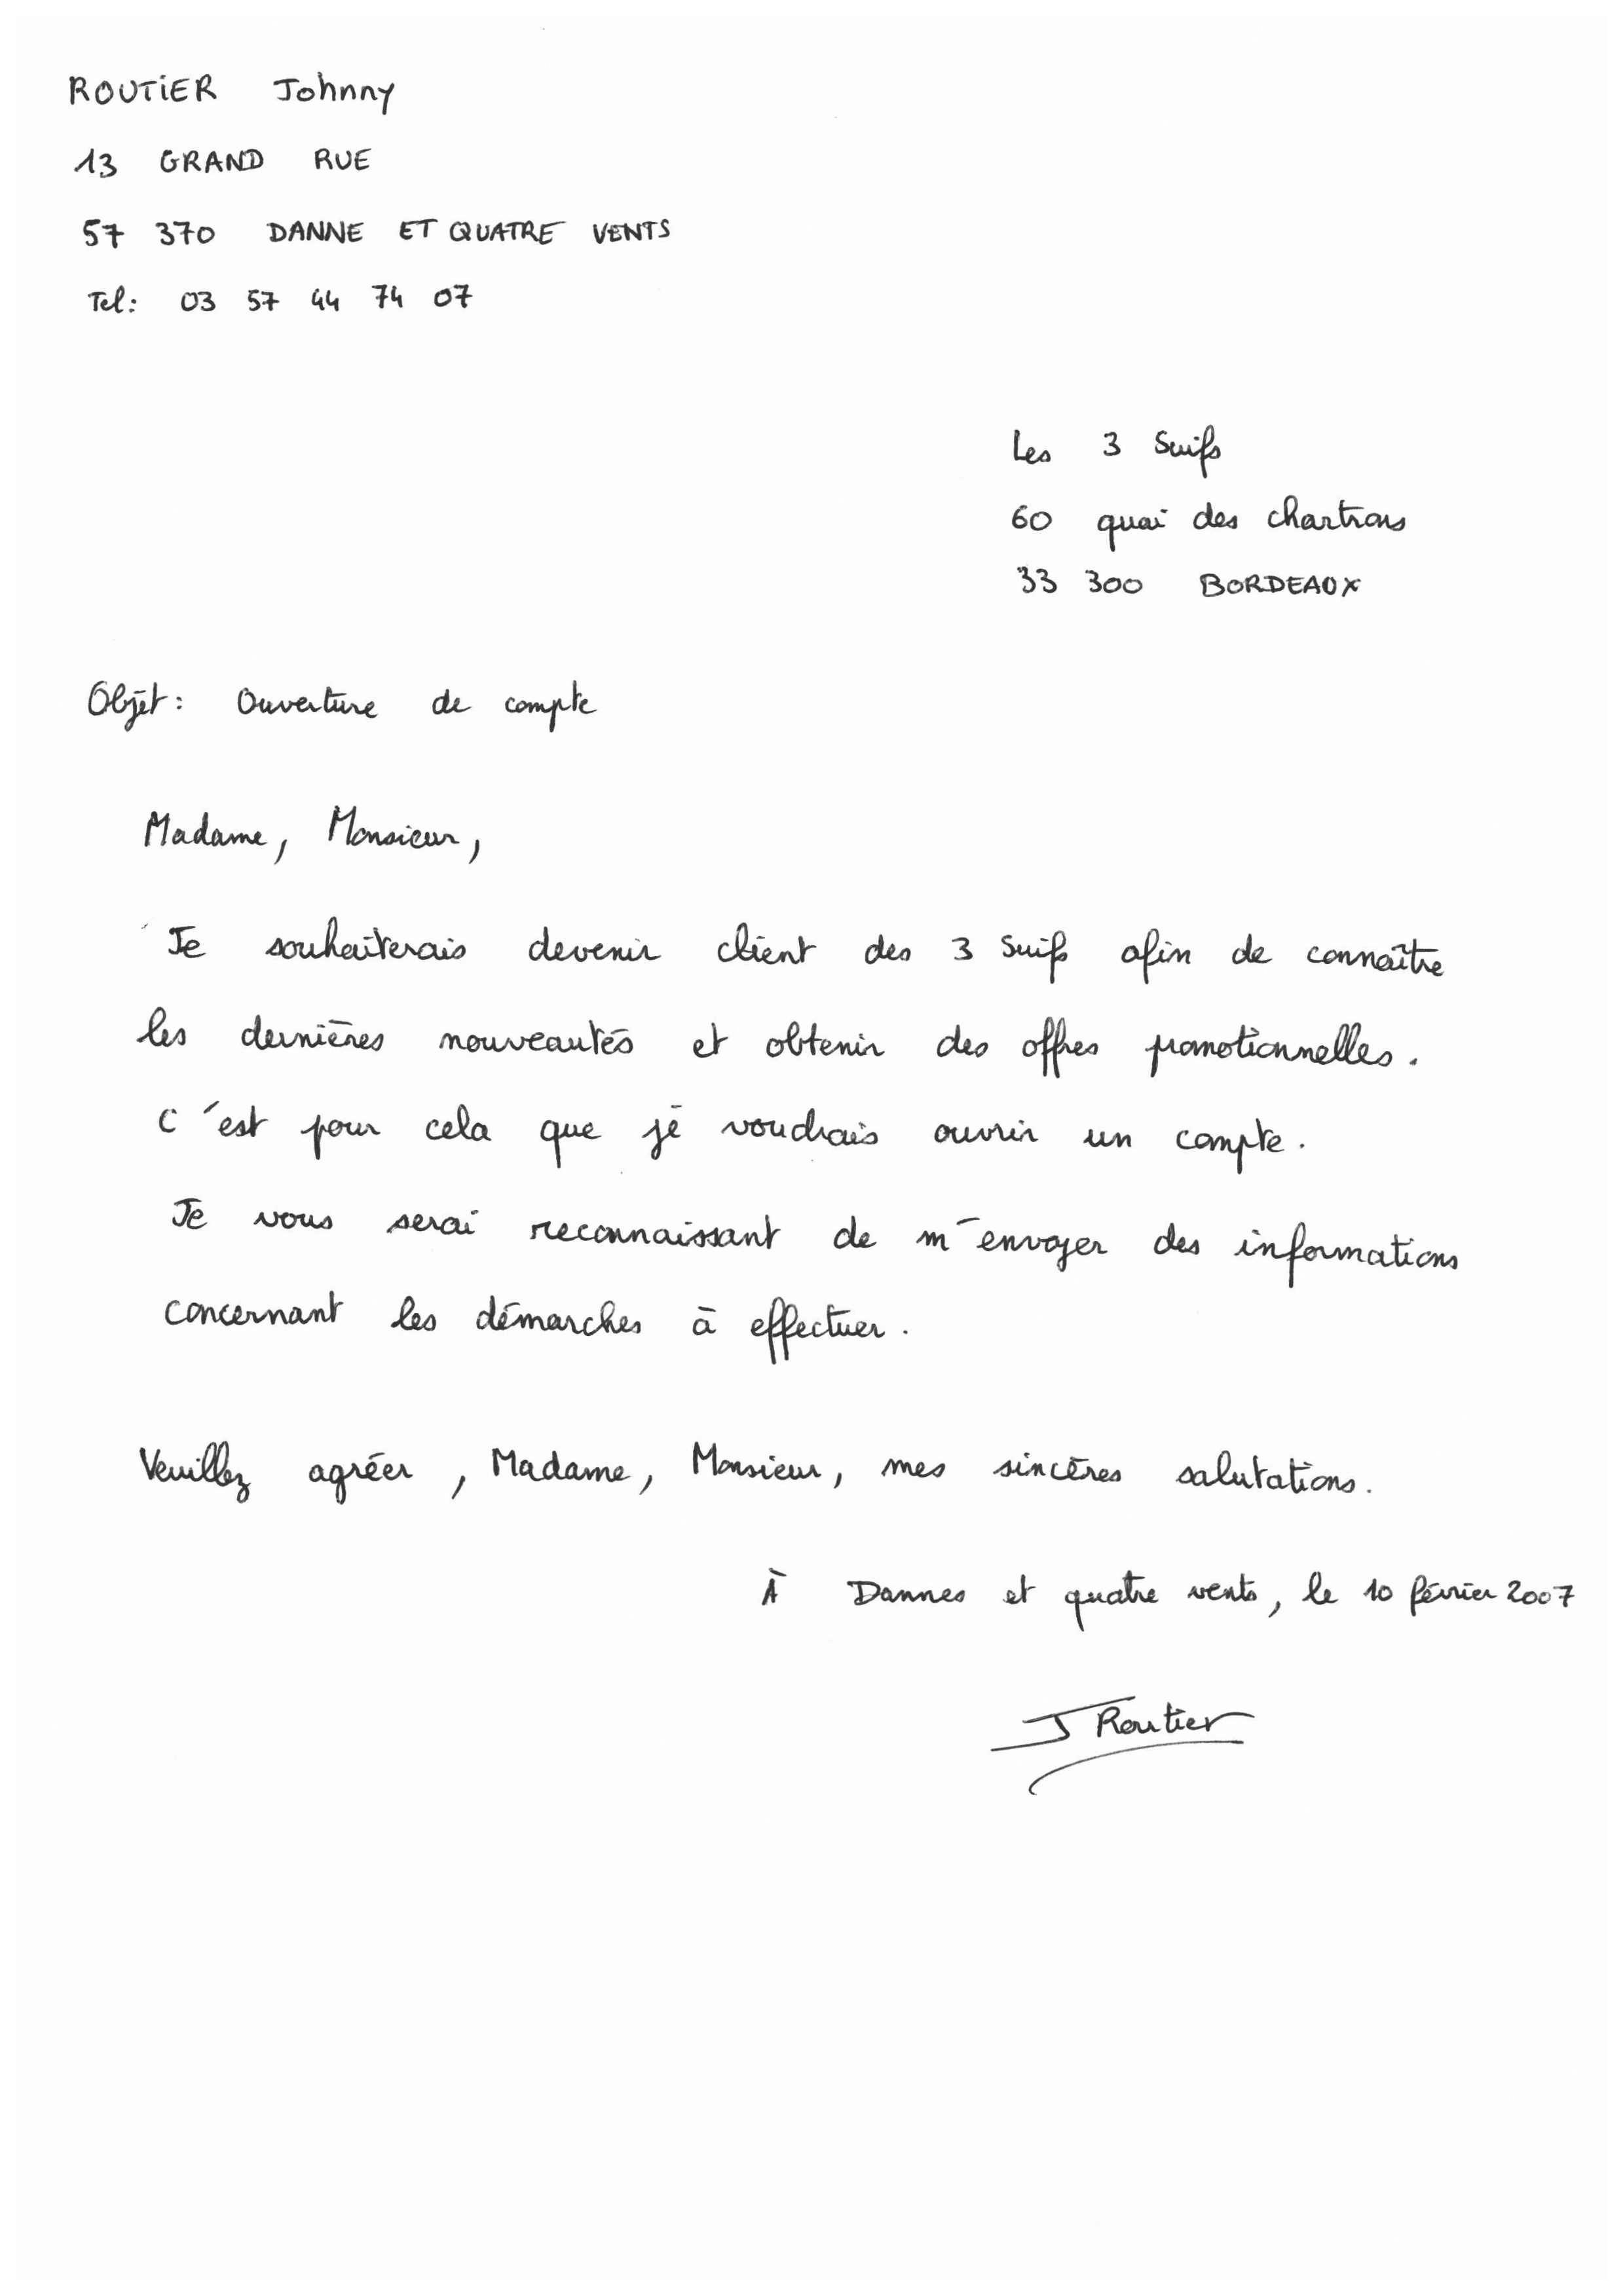 ROUTIER Johnny
13 GRAND RUE
57 370 DANNE ET QUATRE VENTS
Tel: 03 57 44 74 07
Les 3 Suifs
60 quai des chartrons
33 300 BORDEAUX
Objet: Ouverture de compte
Madame, Monsieur,
Je souhaiterais devenir client des 3 Suifs afin de connaître
les dernières nouveautés et obtenir des offres promotionnelles.
C'est pour cela que je voudrais ouvrir un compte.
Je vous serai reconnaissant de m'envoyer des informations
concernant les démarches à effectuer.
Veuillez agréer, Madame, Monsieur, mes sincères salutations.
À Dannes et quatre vents, le 10 février 2007
J Routier